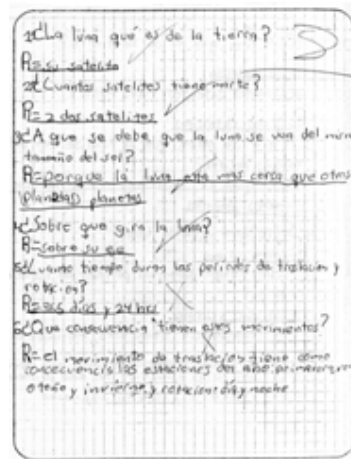 1¿La luna qué es de la tierra?
R= su satelite
2¿Cuantos satelites tiene marte?
R= 2 dos satelites
3¿A que se debe que la luna se vea del mismo
tamaño del sol?
R= porque la luna esta mas cerca que otros
(planetas) planetas
4¿Sobre que gira la luna?
R= sobre su eje
5¿Cuanto tiempo duran los periodos de traslacion y
rotacion?
R= 365 dias y 24 hrs
6¿Que consecuencia tienen estos movimientos?
R= el movimiento de traslacion tiene como
consecuencia las estaciones del año: primavera,
otoño y invierno, y rotacion: dia y noche